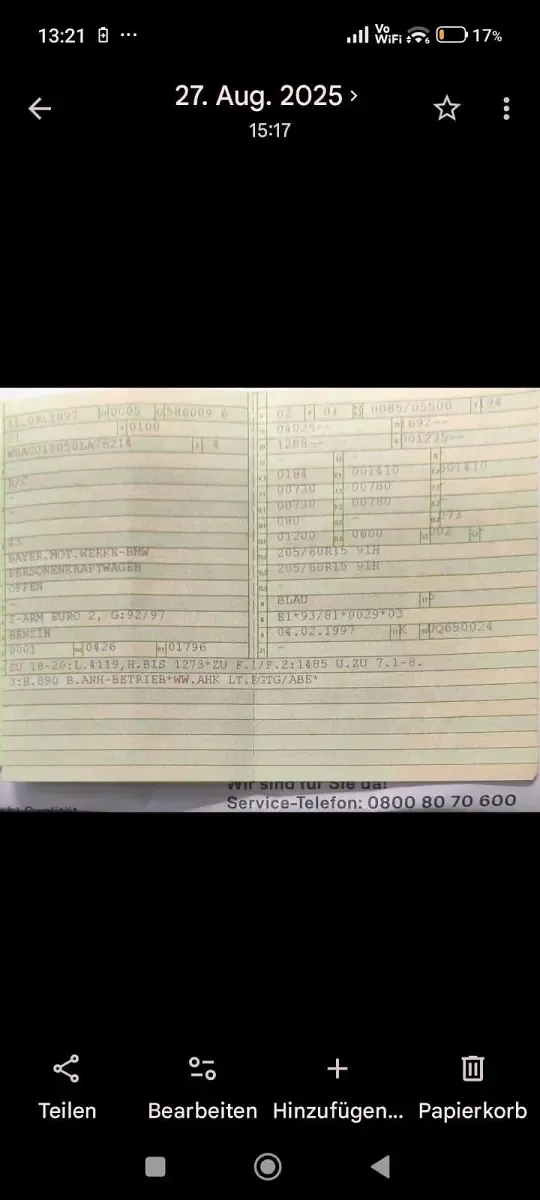 13:21
Vo
WiFi
6
17%
27. Aug. 2025
15:17
11.09.1997 0005 586009 6
21 0100
4
B/C
-
-
23
BAYER.MOT.WERKE-BMW
PERSONENKRAFTWAGEN
OFFEN
-
S-ARM EURO 2, G:92/97
BENZIN
0001 0426 01796
02 01 0085/05500 194
04025--
1288-- 001225--
- -
0184 001410 001410
00730 00780
00730 00780
080 -
01200 0600 02
205/60R15 91H
205/60R15 91H
-
-
BLAU
E1*93/81*0029*03
04.02.1997 K UQ650024
-
ZU 18-20:L.4119,H.BIS 1273*ZU F.1/F.2:1485 U.ZU 7.1-8.
3:H.890 B.ANH-BETRIEB*WW.AHK LT.EGTG/ABE*
Wir sind für Sie da!
Service-Telefon: 0800 80 70 600
Teilen
Bearbeiten
Hinzufügen...
Papierkorb